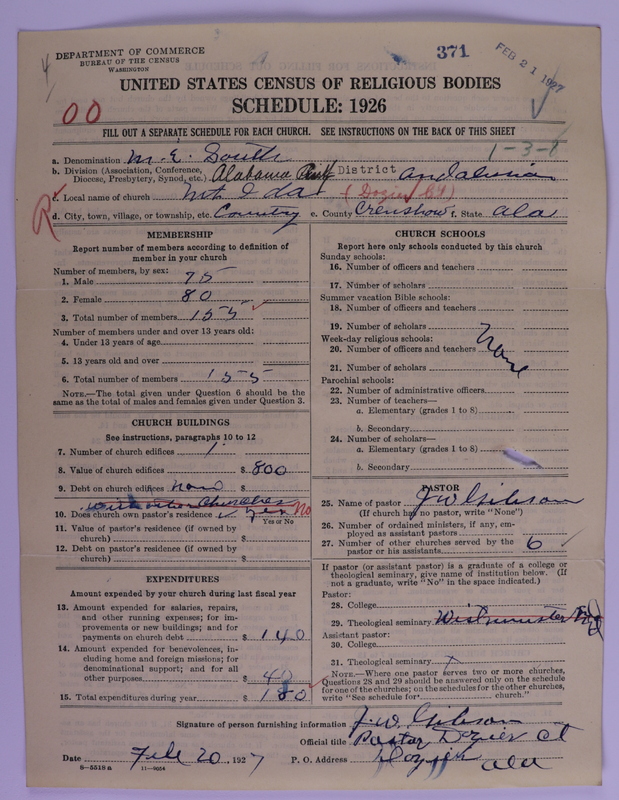 371
FEB 21 1927
DEPARTMENT OF COMMERCE
BUREAU OF THE CENSUS
WASHINGTON
UNITED STATES CENSUS OF RELIGIOUS BODIES
SCHEDULE: 1926
00
FILL OUT A SEPARATE SCHEDULE FOR EACH CHURCH. SEE INSTRUCTIONS ON THE BACK OF THIS SHEET
1-3-8
a. Denomination M. E. South
b. Division (Association, Conference, Diocese, Presbytery, Synod, etc.) Alabama District Andalusia
c. Local name of church Mt Ida (Dozier Ct)
d. City, town, village, or township, etc. Country e. County Crenshow f. State Ala
MEMBERSHIP
Report number of members according to definition of member in your church
Number of members, by sex:
1. Male 75
2. Female 80
3. Total number of members 155
Number of members under and over 13 years old:
4. Under 13 years of age
5. 13 years old and over
6. Total number of members 155
NOTE.—The total given under Question 6 should be the same as the total of males and females given under Question 3.
CHURCH BUILDINGS
See instructions, paragraphs 10 to 12
7. Number of church edifices 1
8. Value of church edifices $800
9. Debt on church edifices $ none
with other Churches
10. Does church own pastor's residence? yes No
Yes or No
11. Value of pastor's residence (if owned by church) $
12. Debt on pastor's residence (if owned by church) $
EXPENDITURES
Amount expended by your church during last fiscal year
13. Amount expended for salaries, repairs, and other running expenses; for improvements or new buildings; and for payments on church debt $ 140
14. Amount expended for benevolences, including home and foreign missions; for denominational support; and for all other purposes $ 40
15. Total expenditures during year $ 180
CHURCH SCHOOLS
Report here only schools conducted by this church
Sunday schools:
16. Number of officers and teachers
17. Number of scholars
Summer vacation Bible schools:
18. Number of officers and teachers
19. Number of scholars
Week-day religious schools:
20. Number of officers and teachers None
21. Number of scholars
Parochial schools:
22. Number of administrative officers
23. Number of teachers—
a. Elementary (grades 1 to 8)
b. Secondary
24. Number of scholars—
a. Elementary (grades 1 to 8)
b. Secondary
PASTOR
25. Name of pastor J W Gibson
(If church has no pastor, write "None")
26. Number of ordained ministers, if any, employed as assistant pastors
27. Number of other churches served by the pastor or his assistants 6
If pastor (or assistant pastor) is a graduate of a college or theological seminary, give name of institution below. (If not a graduate, write "No" in the space indicated.)
Pastor:
28. College
29. Theological seminary
Assistant pastor:
30. College
31. Theological seminary
NOTE.—Where one pastor serves two or more churches, Questions 28 and 29 should be answered only on the schedule for one of the churches; on the schedules for the other churches, write "See schedule for church."
Signature of person furnishing information J. W. Gibson
Official title Pastor Dozier Ct
Date Feb 20, 1927 P. O. Address Dozier Ala
8—5518 a 11—9054